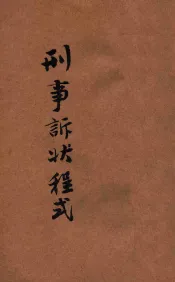 刑事訴状程式